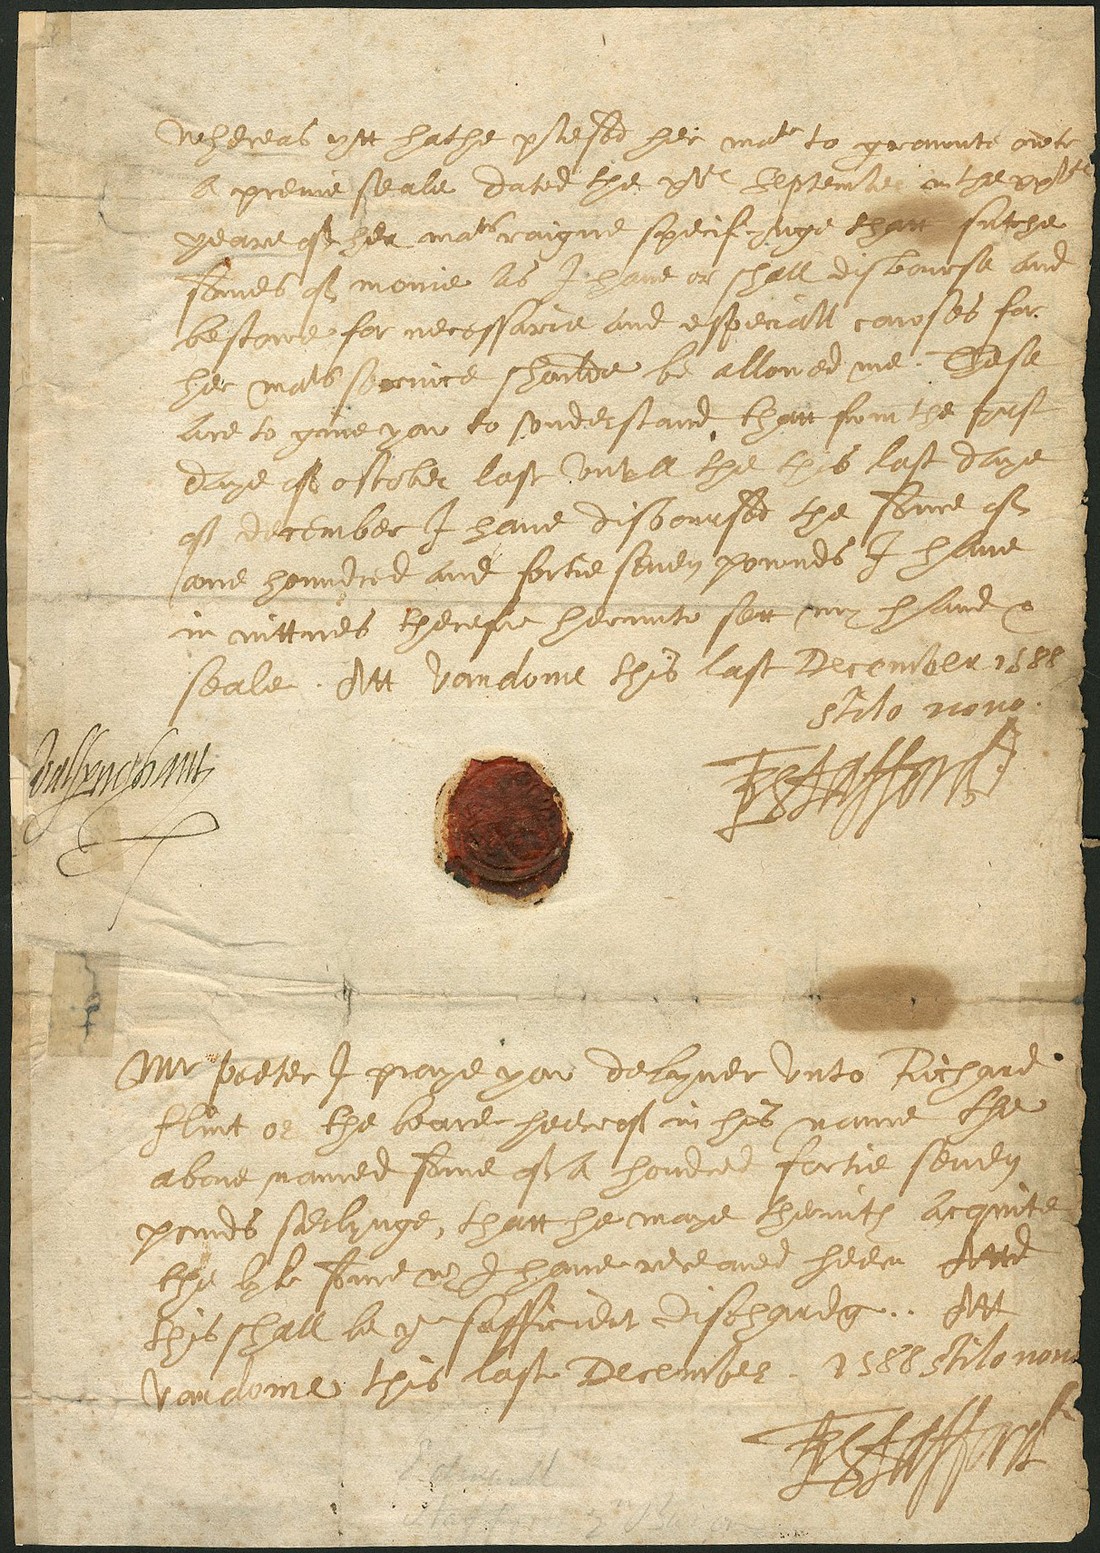 Whereas ytt hathe plesed her matie to graunte owte
a previe seale dated the of September in the
yeare of her mats raigne specifynge thatt sutche
somes of monie as I have or shall disbourse and
bestowe for necessarie and especiall cawses for
her mats service shoulde be allowed me. These
are to give yow to vnderstand thatt from the first
daye of october last vntyll the this last daye
of december I have disboursed the some of
one houndred and fortie seven pownds I have
in wittnes therefore herunto sett my hand &
seale. Att Vandome this last December 1588
stilo novo.
Walsyngham
EStafford
Mr Peeter I praye yow delyver vnto Richard
Flint or the bearer heereof in his name the
above named some of a hondred fortie seven
pownds sterlynge, thatt he maye therwith acquite
the lyke some I have receaved heer And
this shall be yr sufficient discharg.. Att
Vandome this last December. 1588 stilo novo
EStafford